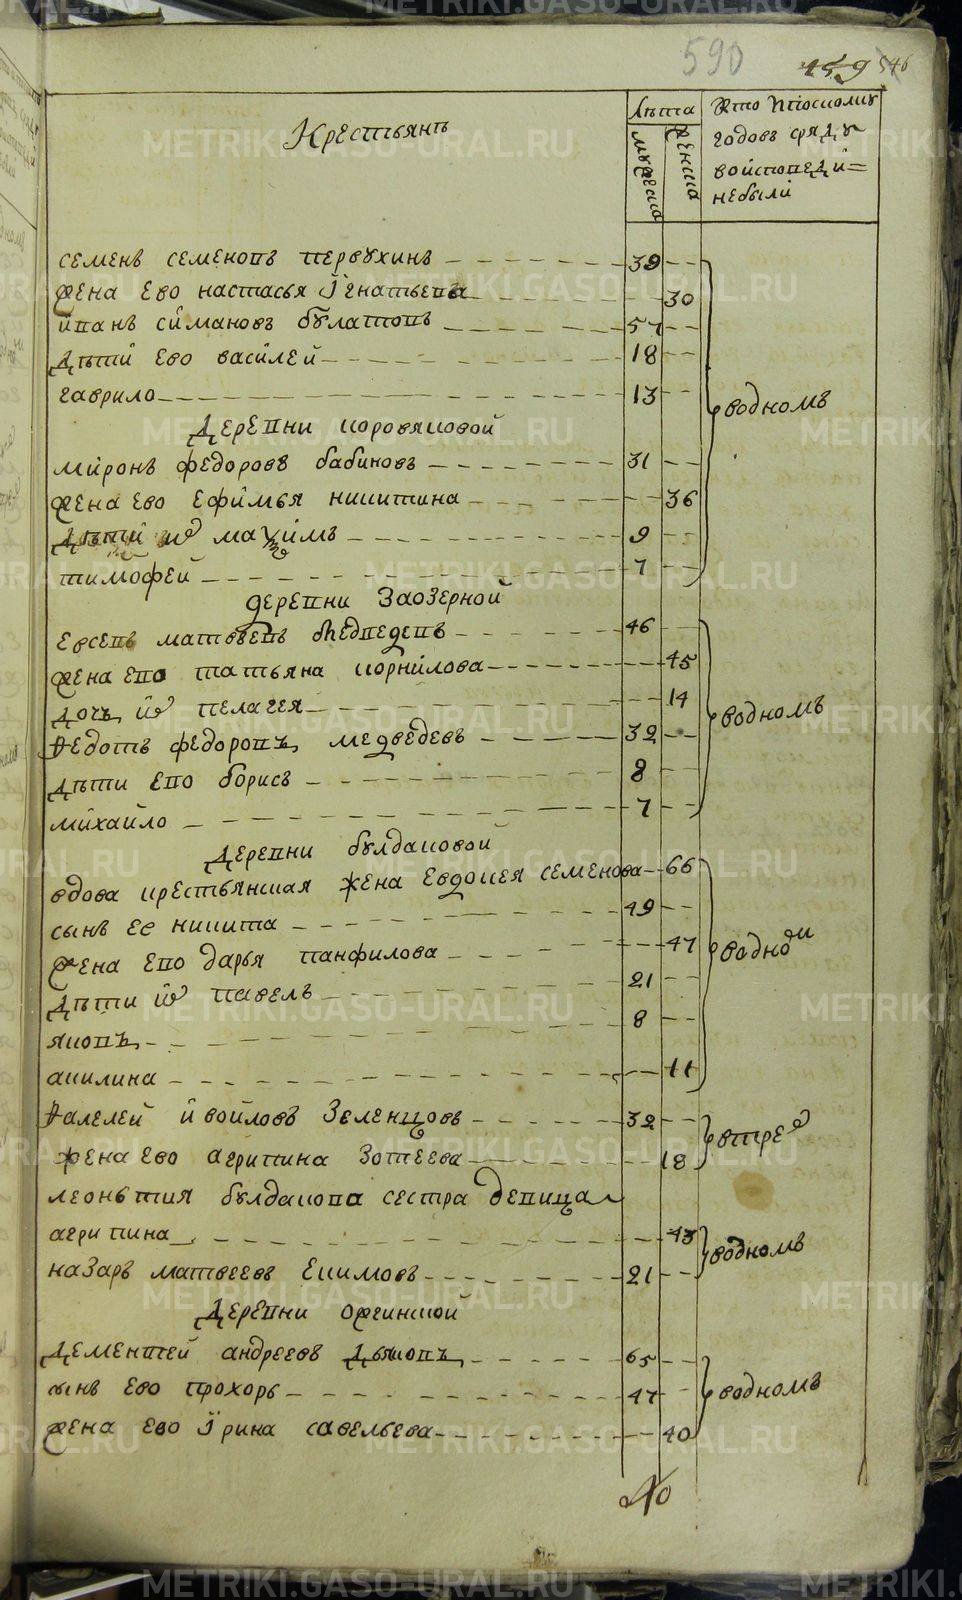 590
459 546
Крестьянъ
Лѣта
мужеска
женска
Кто и посколку
годовъ сряду
воисповеди=
небыли
семенъ семеновъ первухинъ 39
жена ево настасья Їгнатьева 30
иванъ симановъ булатовъ 57
дѣти ево василей 18
гаврило 13
водномъ
Деревни коровяковой
миронъ федоровъ бабиновъ 31
жена ево ефимья никитина 36
дѣти их максимъ 9
тимофей 7
деревни Заозерной
евсевъ матвеевъ медведевъ 46
жена ево татьяна корнилова 45
дочь их пелагея 14
водномъ
Федотъ федоровъ медведевъ 32
дѣти ево борисъ 8
михайло 7
Деревни булдаковой
вдова крестьянская жена Евдокея семенова 66
сынъ ее никита 49
жена ево дарья панфилова 47
водноди
дѣти их павелъ 21
яковъ 8
акилина 11
Фалелей и воиловъ Зеленцовъ 32
втрех
жена ево агрипина Зотеева 18
леонътия булдакова сестра девица
агрипина 43
водномъ
назаръ матвеевъ Екимовъ 21
Деревни оргинской
Дементей андреевъ Дьяковъ 65
сынъ ево прохоръ 47
водномъ
жена ево Їрина савельева 40
No
METRIKI.GASO-URAL.RU